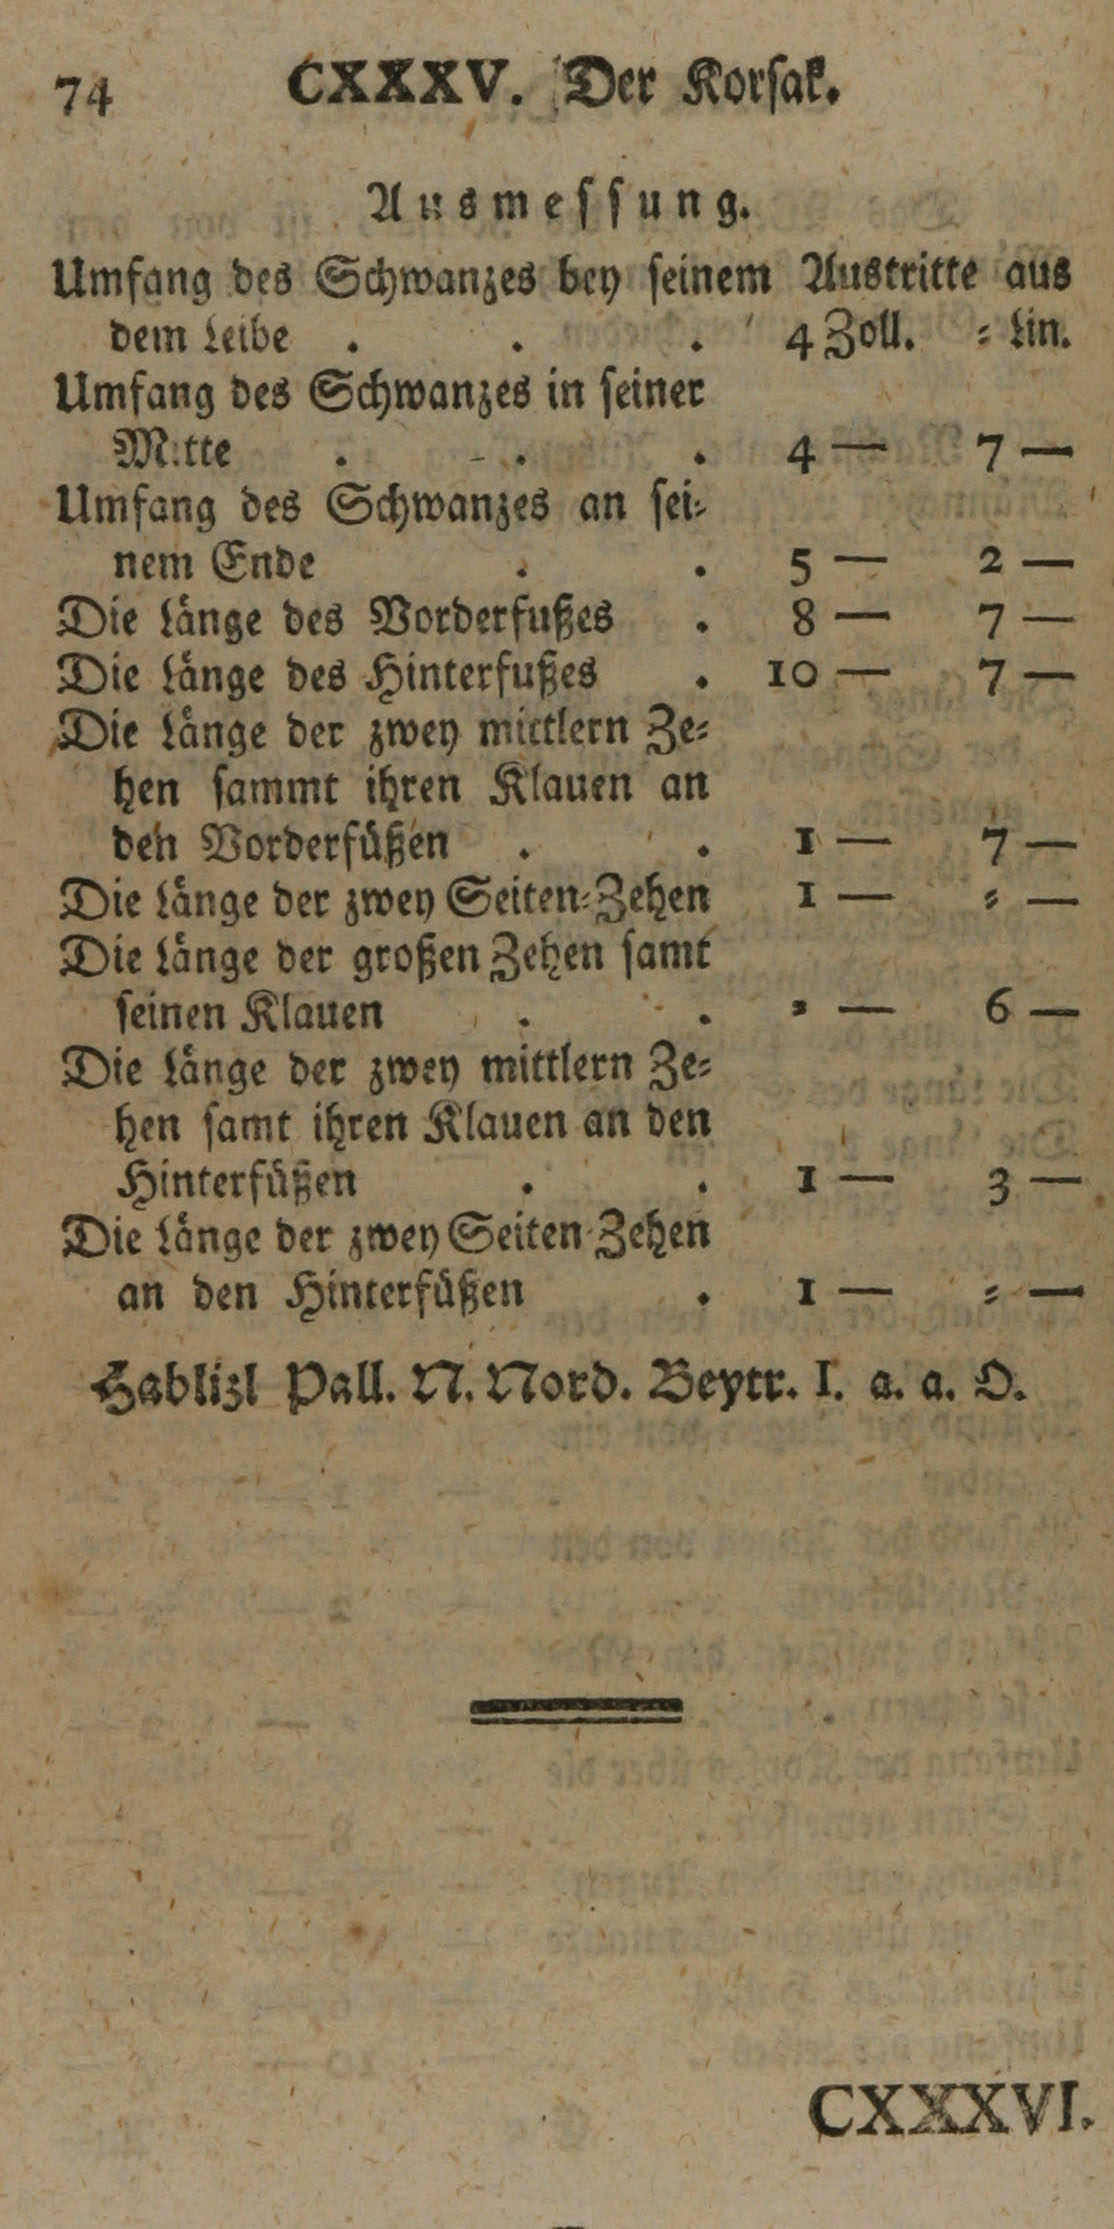 74 CXXXV. Der Korsak.
Ausmessung.
Umfang des Schwanzes bey seinem Austritte aus
dem Leibe . . . 4 Zoll. = Lin.
Umfang des Schwanzes in seiner
Mitte . . . 4 — 7 —
Umfang des Schwanzes an sei=
nem Ende . . 5 — 2 —
Die Länge des Vorderfußes . 8 — 7 —
Die Länge des Hinterfußes . 10 — 7 —
Die Länge der zwey mittlern Ze=
hen sammt ihren Klauen an
den Vorderfüßen . . 1 — 7 —
Die Länge der zwey Seiten=Zehen 1 — = —
Die Länge der großen Zehen samt
seinen Klauen . . = — 6 —
Die Länge der zwey mittlern Ze=
hen samt ihren Klauen an den
Hinterfüßen . . 1 — 3 —
Die Länge der zwey Seiten-Zehen
an den Hinterfüßen . 1 — = —
Hablizl Pall. N. Nord. Beytr. I. a. a. O.
CXXXVI.